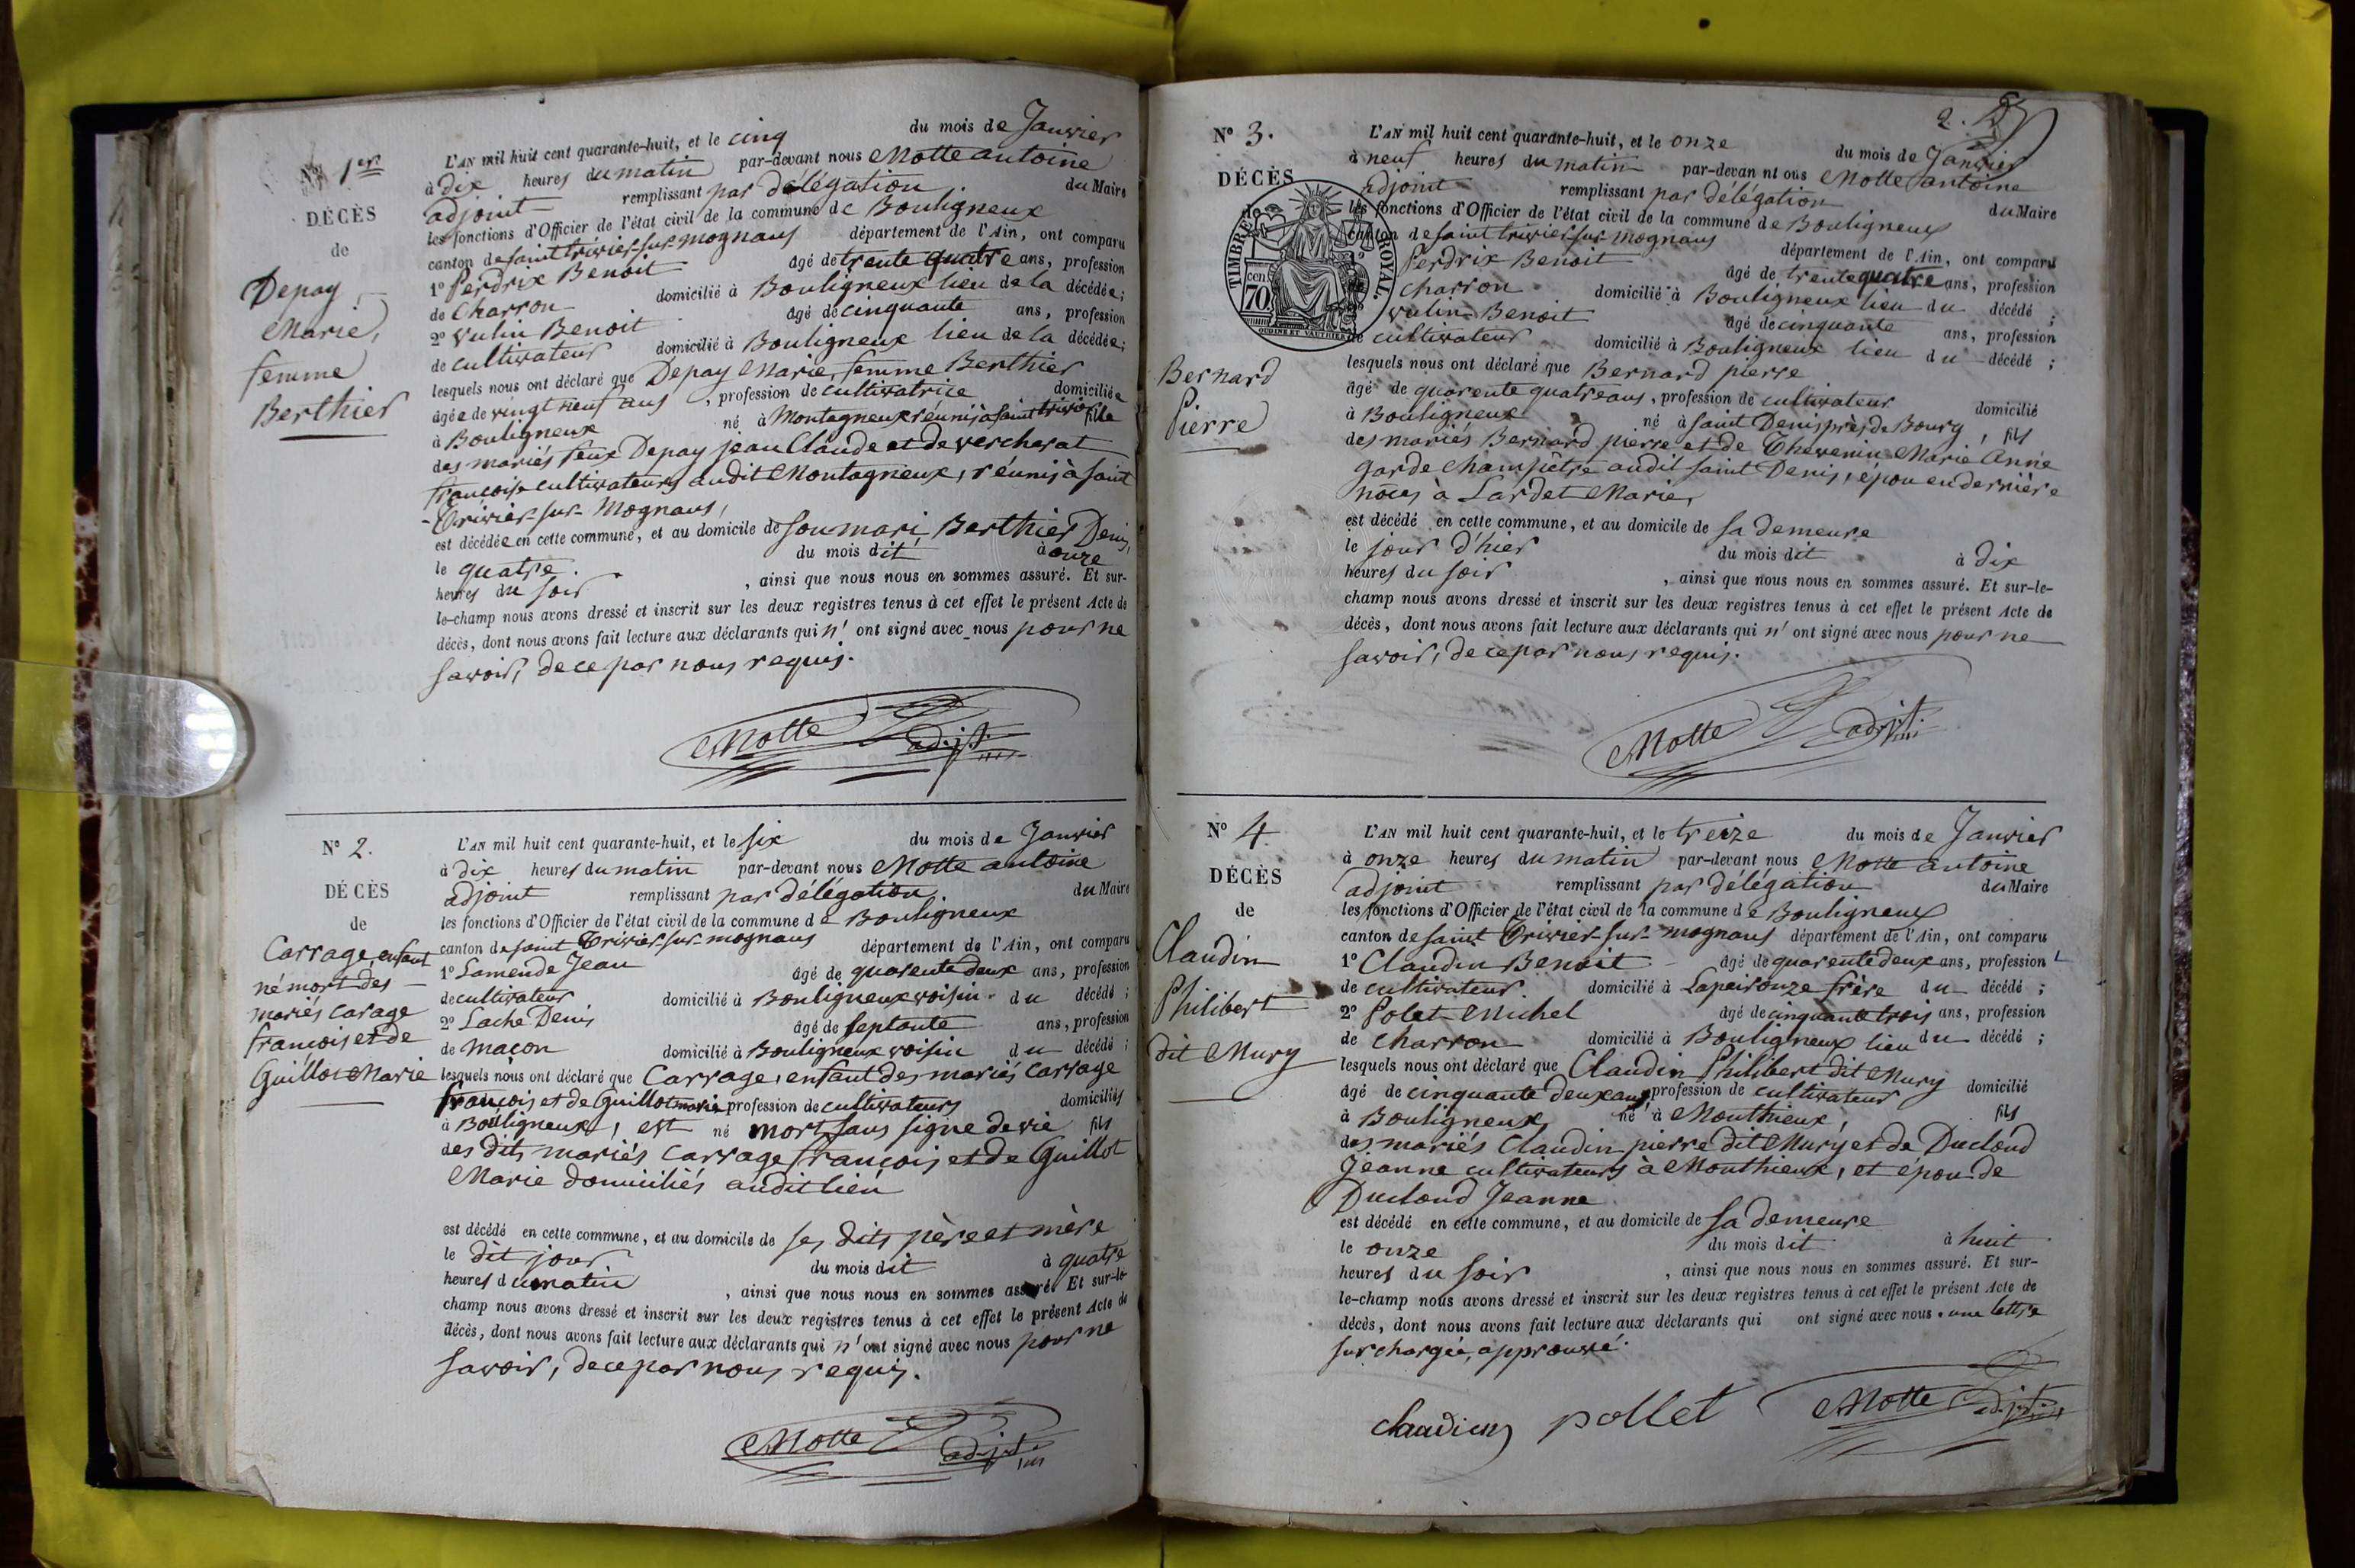 N° 1er
DÉCÈS
de
Depay
Marie,
femme
Berthier
L'AN mil huit cent quarante-huit, et le cinq du mois de Janvier
à dix heures du matin par-devant nous Motte antoine
adjoint remplissant par délégation du Maire
les fonctions d'Officier de l'état civil de la commune de Bouligneux
canton de saint trivier-sur-mognans département de l'Ain, ont comparu
1° Perdrix Benoit âgé de trente quatre ans, profession
de Charron domicilié à Bouligneux lieu de la décédée;
2° Vulin Benoit âgé de cinquante ans, profession
de cultivateur domicilié à Bouligneux lieu de la décédée;
lesquels nous ont déclaré que Depay Marie, femme Berthier
âgée de vingt neuf ans, profession de cultivatrice domiciliée
à Bouligneux né à Montagneux réunis à saint trivier fille
des mariés feux Depay jean Claude et de vercherat
françoise cultivateurs audit Montagneux, réunis à saint
-Trivier-sur-Mognans,
est décédée en cette commune, et au domicile de son mari, Berthier Denis,
le quatre. du mois dit à onze
heures du soir, ainsi que nous nous en sommes assuré. Et sur-
le-champ nous avons dressé et inscrit sur les deux registres tenus à cet effet le présent Acte de
décès, dont nous avons fait lecture aux déclarants qui n'ont signé avec nous pour ne
savoir, de ce par nous requis.
Motte adjt.
N° 2.
DÉCÈS
de
Carrage, enfant
né mort des
mariés Carage
françois et de
Guillot Marie
L'AN mil huit cent quarante-huit, et le six du mois de Janvier
à dix heures du matin par-devant nous Motte antoine
adjoint remplissant par délégation. du Maire
les fonctions d'Officier de l'état civil de la commune de Bouligneux
canton de saint Trivier-sur-mognans département de l'Ain, ont comparu
1° Lamende Jean âgé de quarente deux ans, profession
de cultivateur domicilié à Bouligneux voisin du décédé;
2° Lache Denis âgé de septante ans, profession
de maçon domicilié à Bouligneux voisin du décédé;
lesquels nous ont déclaré que Carrage, enfant des mariés Carrage
françois et de Guillot marie, profession de cultivateurs domiciliés
à Bouligneux, est né mort sans signe de vie fils
des dits mariés Carrage françois et de Guillot
Marie domiciliés audit lieu
est décédé en cette commune, et au domicile de ses dits père et mère
le dit jour du mois dit à quatre
heures du matin, ainsi que nous nous en sommes assuré. Et sur-le-
champ nous avons dressé et inscrit sur les deux registres tenus à cet effet le présent Acte de
décès, dont nous avons fait lecture aux déclarants qui n'ont signé avec nous pour ne
savoir, de ce par nous requis.
Motte adjt.
2.
N° 3.
DÉCÈS
de
TIMBRE ROYAL.
70 cen
OUDINÉ ET VAUTHIER
Bernard
Pierre
L'AN mil huit cent quarante-huit, et le onze du mois de Janvier
à neuf heures du matin par-devan nt ous Motte antoine
adjoint remplissant par délégation du Maire
les fonctions d'Officier de l'état civil de la commune de Bouligneux
canton de saint trivier-sur-mognans département de l'Ain, ont comparu
Perdrix Benoit âgé de trente quatre ans, profession
charron domicilié à Bouligneux lieu du décédé;
vulin Benoit âgé de cinquante ans, profession
de cultivateur domicilié à Bouligneux lieu du décédé;
lesquels nous ont déclaré que Bernard pierre
âgé de quarente quatre ans, profession de cultivateur domicilié
à Bouligneux né à saint Denis près de Bourg, fils
des mariés Bernard pierre et de Thevenin Marie Anne
garde champêtre audit saint Denis, époux en dernière
nôces à Lardet Marie,
est décédé en cette commune, et au domicile de sa demeure
le jour d'hier du mois dit à dix
heures du soir, ainsi que nous nous en sommes assuré. Et sur-le-
champ nous avons dressé et inscrit sur les deux registres tenus à cet effet le présent Acte de
décès, dont nous avons fait lecture aux déclarants qui n'ont signé avec nous pour ne
savoir, de ce par nous requis.
Motte adjt.
N° 4.
DÉCÈS
de
Claudin
Philibert
dit Mury
L'AN mil huit cent quarante-huit, et le treize du mois de Janvier
à onze heures du matin par-devant nous Motte antoine
adjoint remplissant par délégation du Maire
les fonctions d'Officier de l'état civil de la commune de Bouligneux
canton de saint Trivier-sur-mognans département de l'Ain, ont comparu
1° Claudin Benoit âgé de quarente deux ans, profession
de cultivateur domicilié à Lapeirouze frère du décédé;
2° Polet Michel âgé de cinquante trois ans, profession
de charron domicilié à Bouligneux lieu du décédé;
lesquels nous ont déclaré que Claudin Philibert dit Mury
âgé de cinquante deux ans, profession de cultivateur domicilié
à Bouligneux né à Monthieux, fils
des mariés Claudin pierre dit Mury et de Ducloud
Jeanne cultivateurs à Monthieux, et époux de
Ducloud Jeanne
est décédé en cette commune, et au domicile de sa demeure
le onze du mois dit à huit
heures du soir, ainsi que nous nous en sommes assuré. Et sur-
le-champ nous avons dressé et inscrit sur les deux registres tenus à cet effet le présent Acte de
décès, dont nous avons fait lecture aux déclarants qui ont signé avec nous. une lettre
surchargée, approuvé.
Claudien pollet Motte adjt.